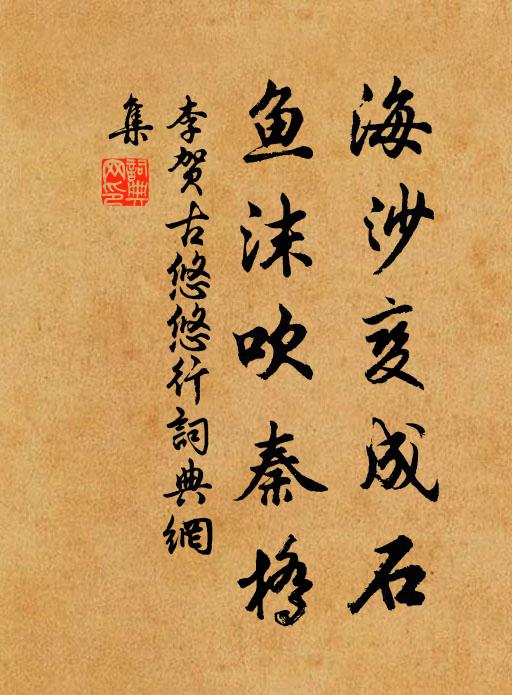 海沙变成石
鱼沫吹秦桥
李贺古悠悠行詞典網
集
詞典网印